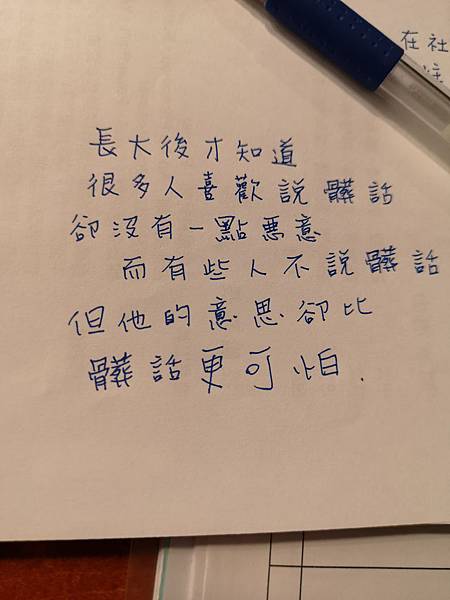 在社
長大後才知道
很多人喜歡說髒話
卻沒有一點惡意
而有些人不說髒話
但他的意思卻比
髒話更可怕.